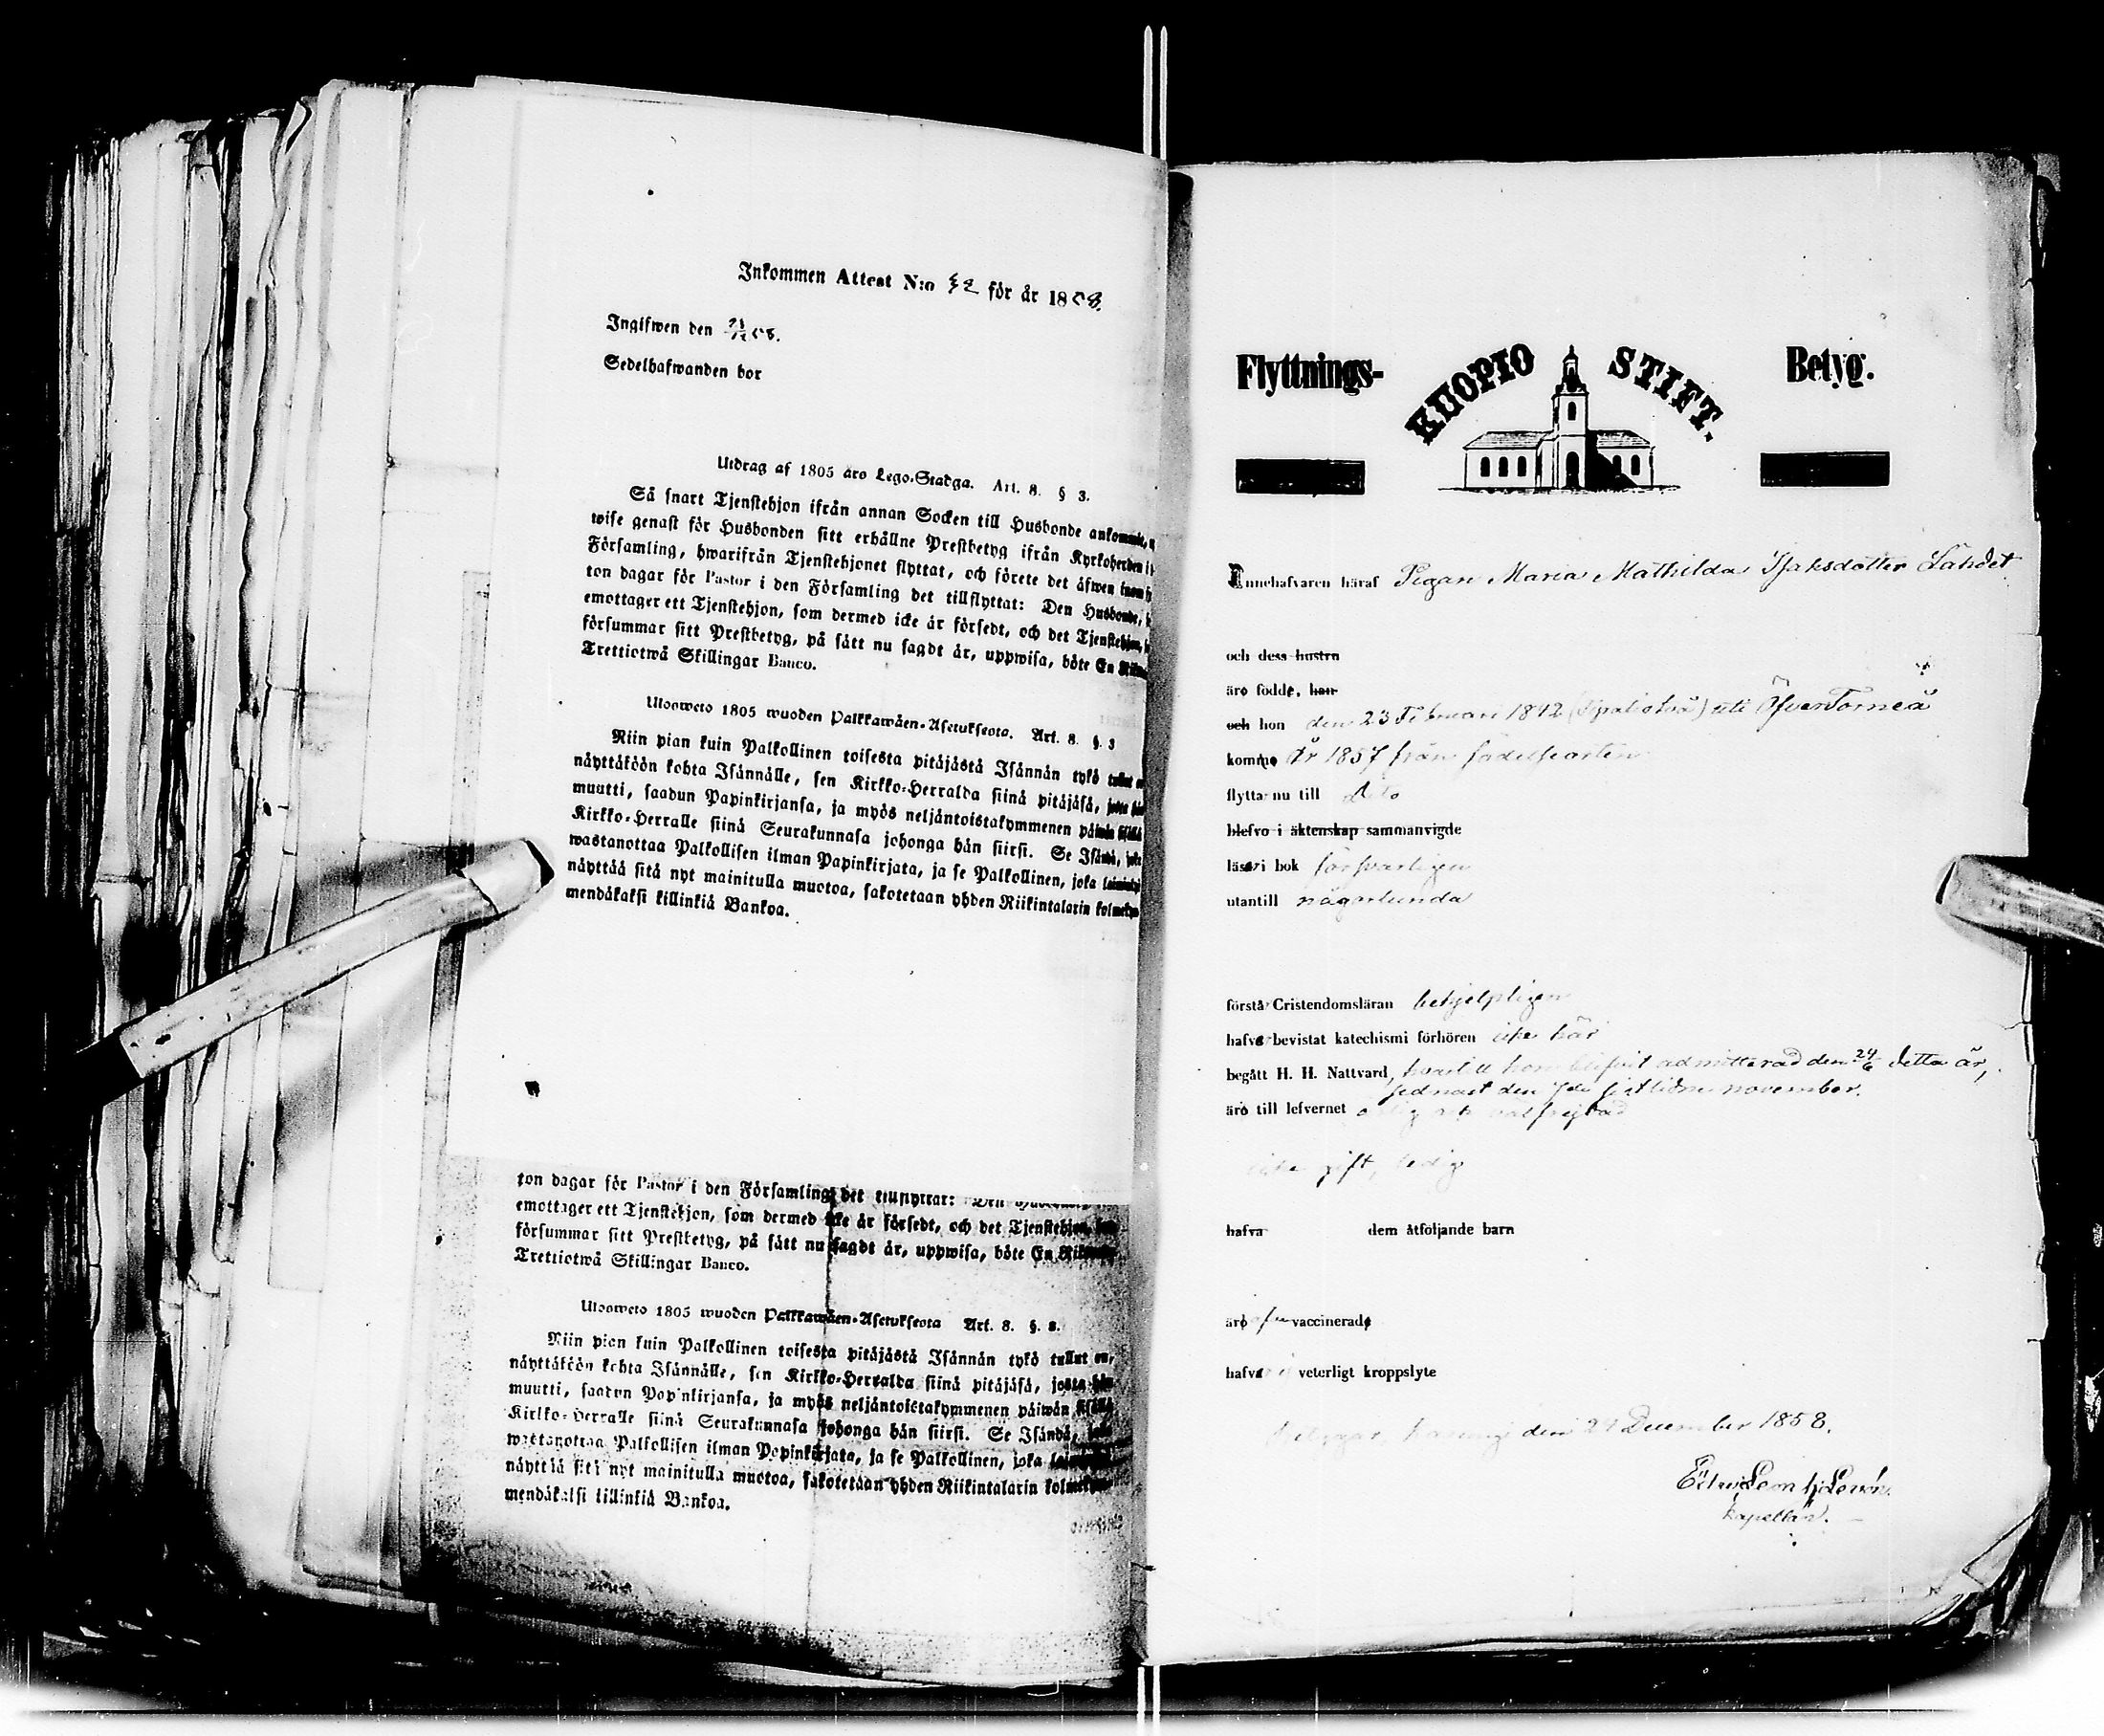 Inkommen Attest N:o 52 för år 1858.
Ingifwen den 58.
Sedelhafwanden bor
Utdrag af 1805 års Lego-Stadga. Art. 8. § 3.
Så snart Tjenstehjon ifrån annan Socken till Husbonde ankommit,
wise genast för Husbonden sitt erhållne Prestbetyg ifrån Kyrkoherden i
Församling, hwarifrån Tjenstehjonet flyttat, och förete det äfwen inom
ton dagar för Pastor i den Församling det tillflyttat: Den Husbonde,
emottager ett Tjenstehjon, som dermed icke är försedt, och det Tjenstehjon,
försummar sitt Prestbetyg, på sätt nu sagdt är, uppwisa, böte En
Trettiotwå Skillingar Banco.
Ulosweto 1805 wuoden Palkkawäen-Asetuksesta. Art. 8. §. 3
Niin pian kuin Palkollinen toisesta pitäjästä Isännän tykö tullut
näyttäköön kohta Isännälle, sen Kirkko-Herralda siinä pitäjäsä, josta hän
muutti, saadun Papinkirjansa, ja myös neljäntoistakymmenen päiwän sisällä
Kirkko-Herralle siinä Seurakunnasa johonga hän siirsi. Se Isändä, joka
wastanottaa Palkollisen ilman Papinkirjata, ja se Palkollinen, joka
näyttää sitä nyt mainitulla muotoa, sakotetaan yhden Riikintalarin
mendäkaksi killinkiä Bankoa.
ton dagar för Pastor i den Församling det tillflyttat: Den
emottager ett Tjenstehjon, som dermed icke är försedt, och det Tjenstehjon,
försummar sitt Prestbetyg, på sätt nu sagdt är, uppwisa, böte En
Trettiotwå Skillingar Banco.
Ulosweto 1805 wuoden Palkkawäen-Asetuksesta Art. 8. §. 3.
Niin pian kuin Palkollinen toisesta pitäjästä Isännän tykö tullut on,
näyttäköön kohta Isännälle, sen Kirkko-Herralda siinä pitäjäsä, josta hän
muutti, saadun Papinkirjansa, ja myös neljäntoistakymmenen päiwän sisällä
Kirkko-Herralle siinä Seurakunnasa johonga hän siirsi. Se Isändä, joka
wastanottaa Palkollisen ilman Papinkirjata, ja se Palkollinen, joka
näyttää sitä nyt mainitulla muotoa, sakotetaan yhden Riikintalarin
mendäkaksi killinkiä Bankoa.
Flyttnings- KUOPIO STIFT. Betyg.
Innehafvaren häraf Pigan Maria Mathilda Isaksdotter Lahdet
och dess hustru
äro födde, han
och hon den 23 Februari 1842 uti ÖfverTorneå
komme år 1857 från födelseorten
flytta nu till dito
blefvo i äktenskap sammanvigde
läser i bok försvarligen
utantill någorlunda
förstå Cristendomsläran behjelpligen
hafva bevistat katechismi förhören icke här
begått H. H. Nattvard, hvartill hon blifvit admitterad den 24/6 detta år,
sednast den 7de sistlidne november.
äro till lefvernet ärlig och välfrejdad
icke gift, ledig
hafva dem åtföljande barn
äro vaccinerade
hafva veterligt kroppslyte
den 29 December 1858.
Kapellan.